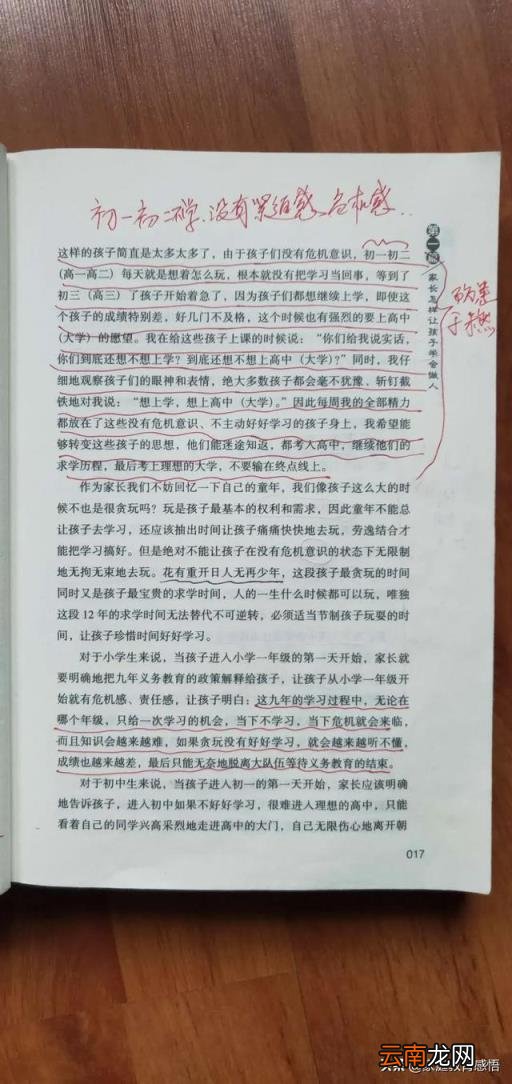 初一初二学.没有紧迫感、危机感..
第一篇
家长怎样让孩子学会做人
这样的孩子简直是太多太多了，由于孩子们没有危机意识，初一初二
（高一高二）每天就是想着怎么玩，根本就没有把学习当回事，等到了
初三（高三）了孩子开始着急了，因为孩子们都想继续上学，即使这
个孩子的成绩特别差，好几门不及格，这个时候也有强烈的要上高中
（大学）的愿望。我在给这些孩子上课的时候说：“你们给我说实话，
你们到底还想不想上学？到底还想不想上高中（大学）？”同时，我仔
细地观察孩子们的眼神和表情，绝大多数孩子都会毫不犹豫、斩钉截
铁地对我说：“想上学，想上高中（大学）。”因此每周我的全部精力
都放在了这些没有危机意识、不主动好好学习的孩子身上，我希望能
够转变这些孩子的思想，他们能迷途知返，都考入高中，继续他们的
求学历程，最后考上理想的大学，不要输在终点线上。
作为家长我们不妨回忆一下自己的童年，我们像孩子这么大的时
候不也是很贪玩吗？玩是孩子最基本的权利和需求，因此童年不能总
让孩子去学习，还应该抽出时间让孩子痛痛快快地去玩，劳逸结合才
能把学习搞好。但是绝对不能让孩子在没有危机意识的状态下无限制
地无拘无束地去玩。花有重开日人无再少年，这段孩子最贪玩的时间
同时又是孩子最宝贵的求学时间，人的一生什么时候都可以玩，唯独
这段 12 年的求学时间无法替代不可逆转，必须适当节制孩子玩耍的时
间，让孩子珍惜时间好好学习。
对于小学生来说，当孩子进入小学一年级的第一天开始，家长就
要明确地把九年义务教育的政策解释给孩子，让孩子从小学一年级开
始就有危机感、责任感，让孩子明白：这九年的学习过程中，无论在
哪个年级，只给一次学习的机会，当下不学习，当下危机就会来临，
而且知识会越来越难，如果贪玩没有好好学习，就会越来越听不懂，
成绩也越来越差，最后只能无奈地脱离大队伍等待义务教育的结束。
对于初中生来说，当孩子进入初一的第一天开始，家长应该明确
地告诉孩子，进入初中如果不好好学习，很难进入理想的高中，只能
看着自己的同学兴高采烈地走进高中的大门，自己无限伤心地离开朝
017
云南龙网
头条 @家庭教育感悟